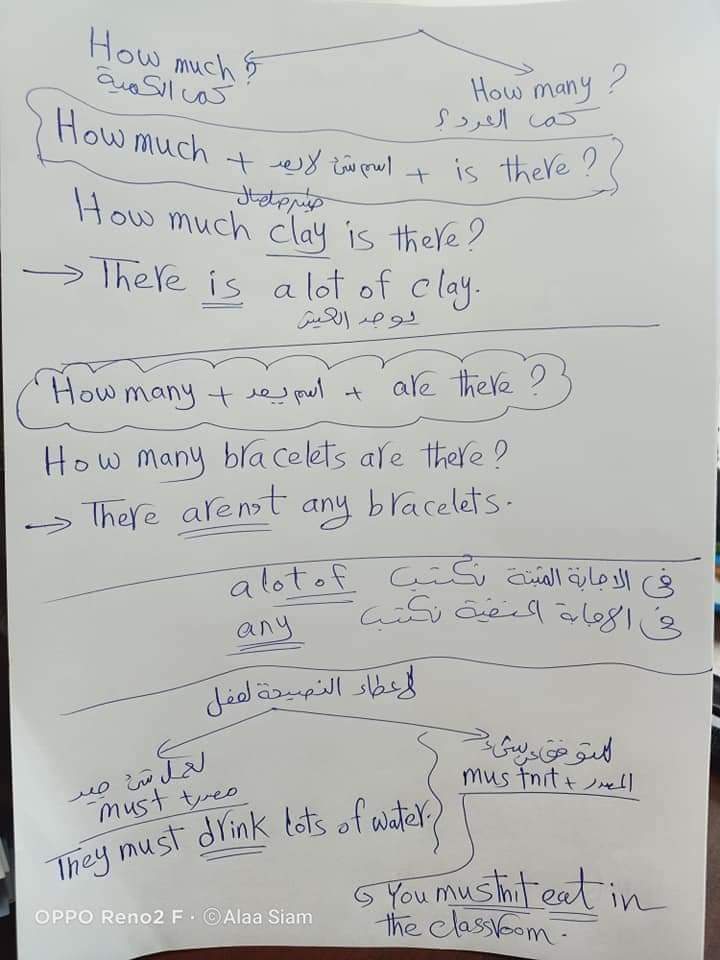 How much?
كمية الكمية
How many?
كمية العدد؟
How much + اسم شئ لا يعد + is there?
طين صلصال
How much clay is there?
→ There is a lot of clay.
يوجد الكثير
How many + اسم يعد + are there?
How many bracelets are there?
→ There aren't any bracelets.
فى الاجابة المثبتة نكتب a lot of
فى الاجابة المنفية نكتب any
لاعطاء النصيحة لفعل
لعمل شئ جيد
must + مصدر
They must drink lots of water.
للتوقف عن شئ
mustn't + المصدر
You mustn't eat in
the classroom.
OPPO Reno2 F · ©Alaa Siam